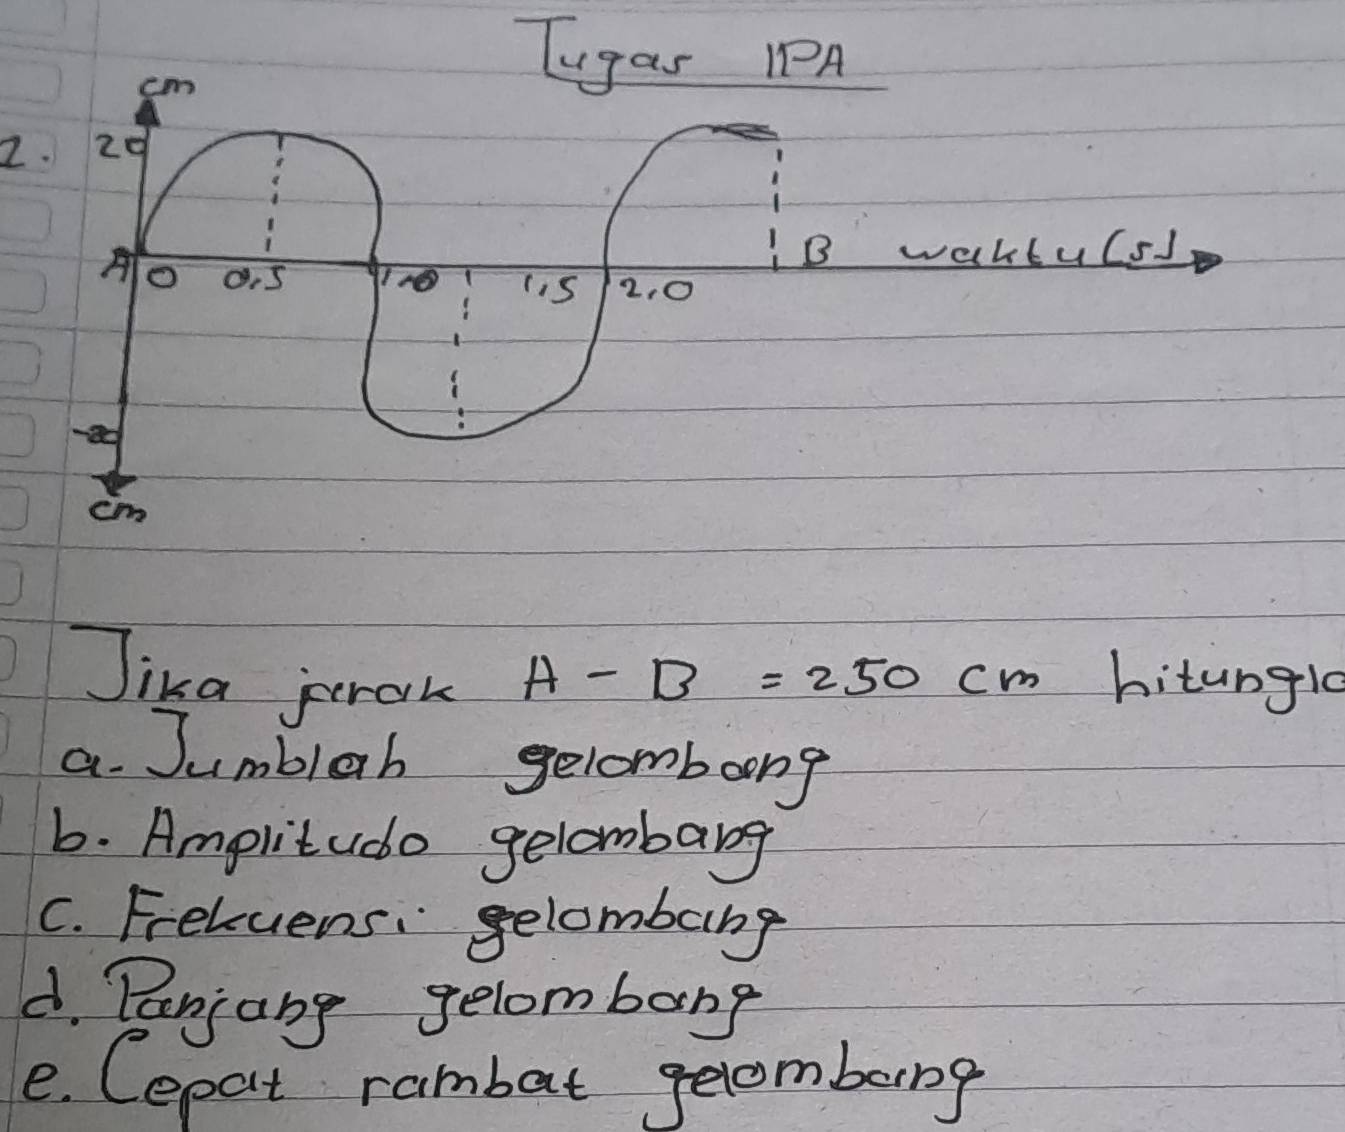 Tugas IPA
cm
1. 20
A 0 0,5 1,0 1,5 2,0 B waktu (s)
-20
cm
Jika jarak A - B = 250 cm hitungla
a. Jumblah gelombang
b. Amplitudo gelombang
c. Frekuensi gelombang
d. Panjang gelombang
e. Cepat rambat gelombang